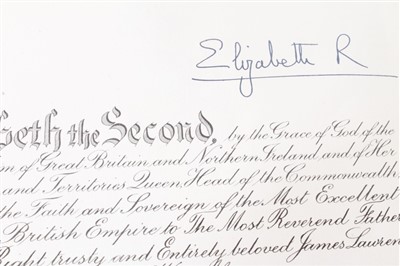 Elizabeth R
beth the Second, by the Grace of God of the
om of Great Britain and Northern Ireland and of Her
and Territories Queen, Head of the Commonwealth,
the Faith and Sovereign of the Most Excellent
British Empire to The Most Reverend Father
Right trusty and Entirely beloved James Lawren